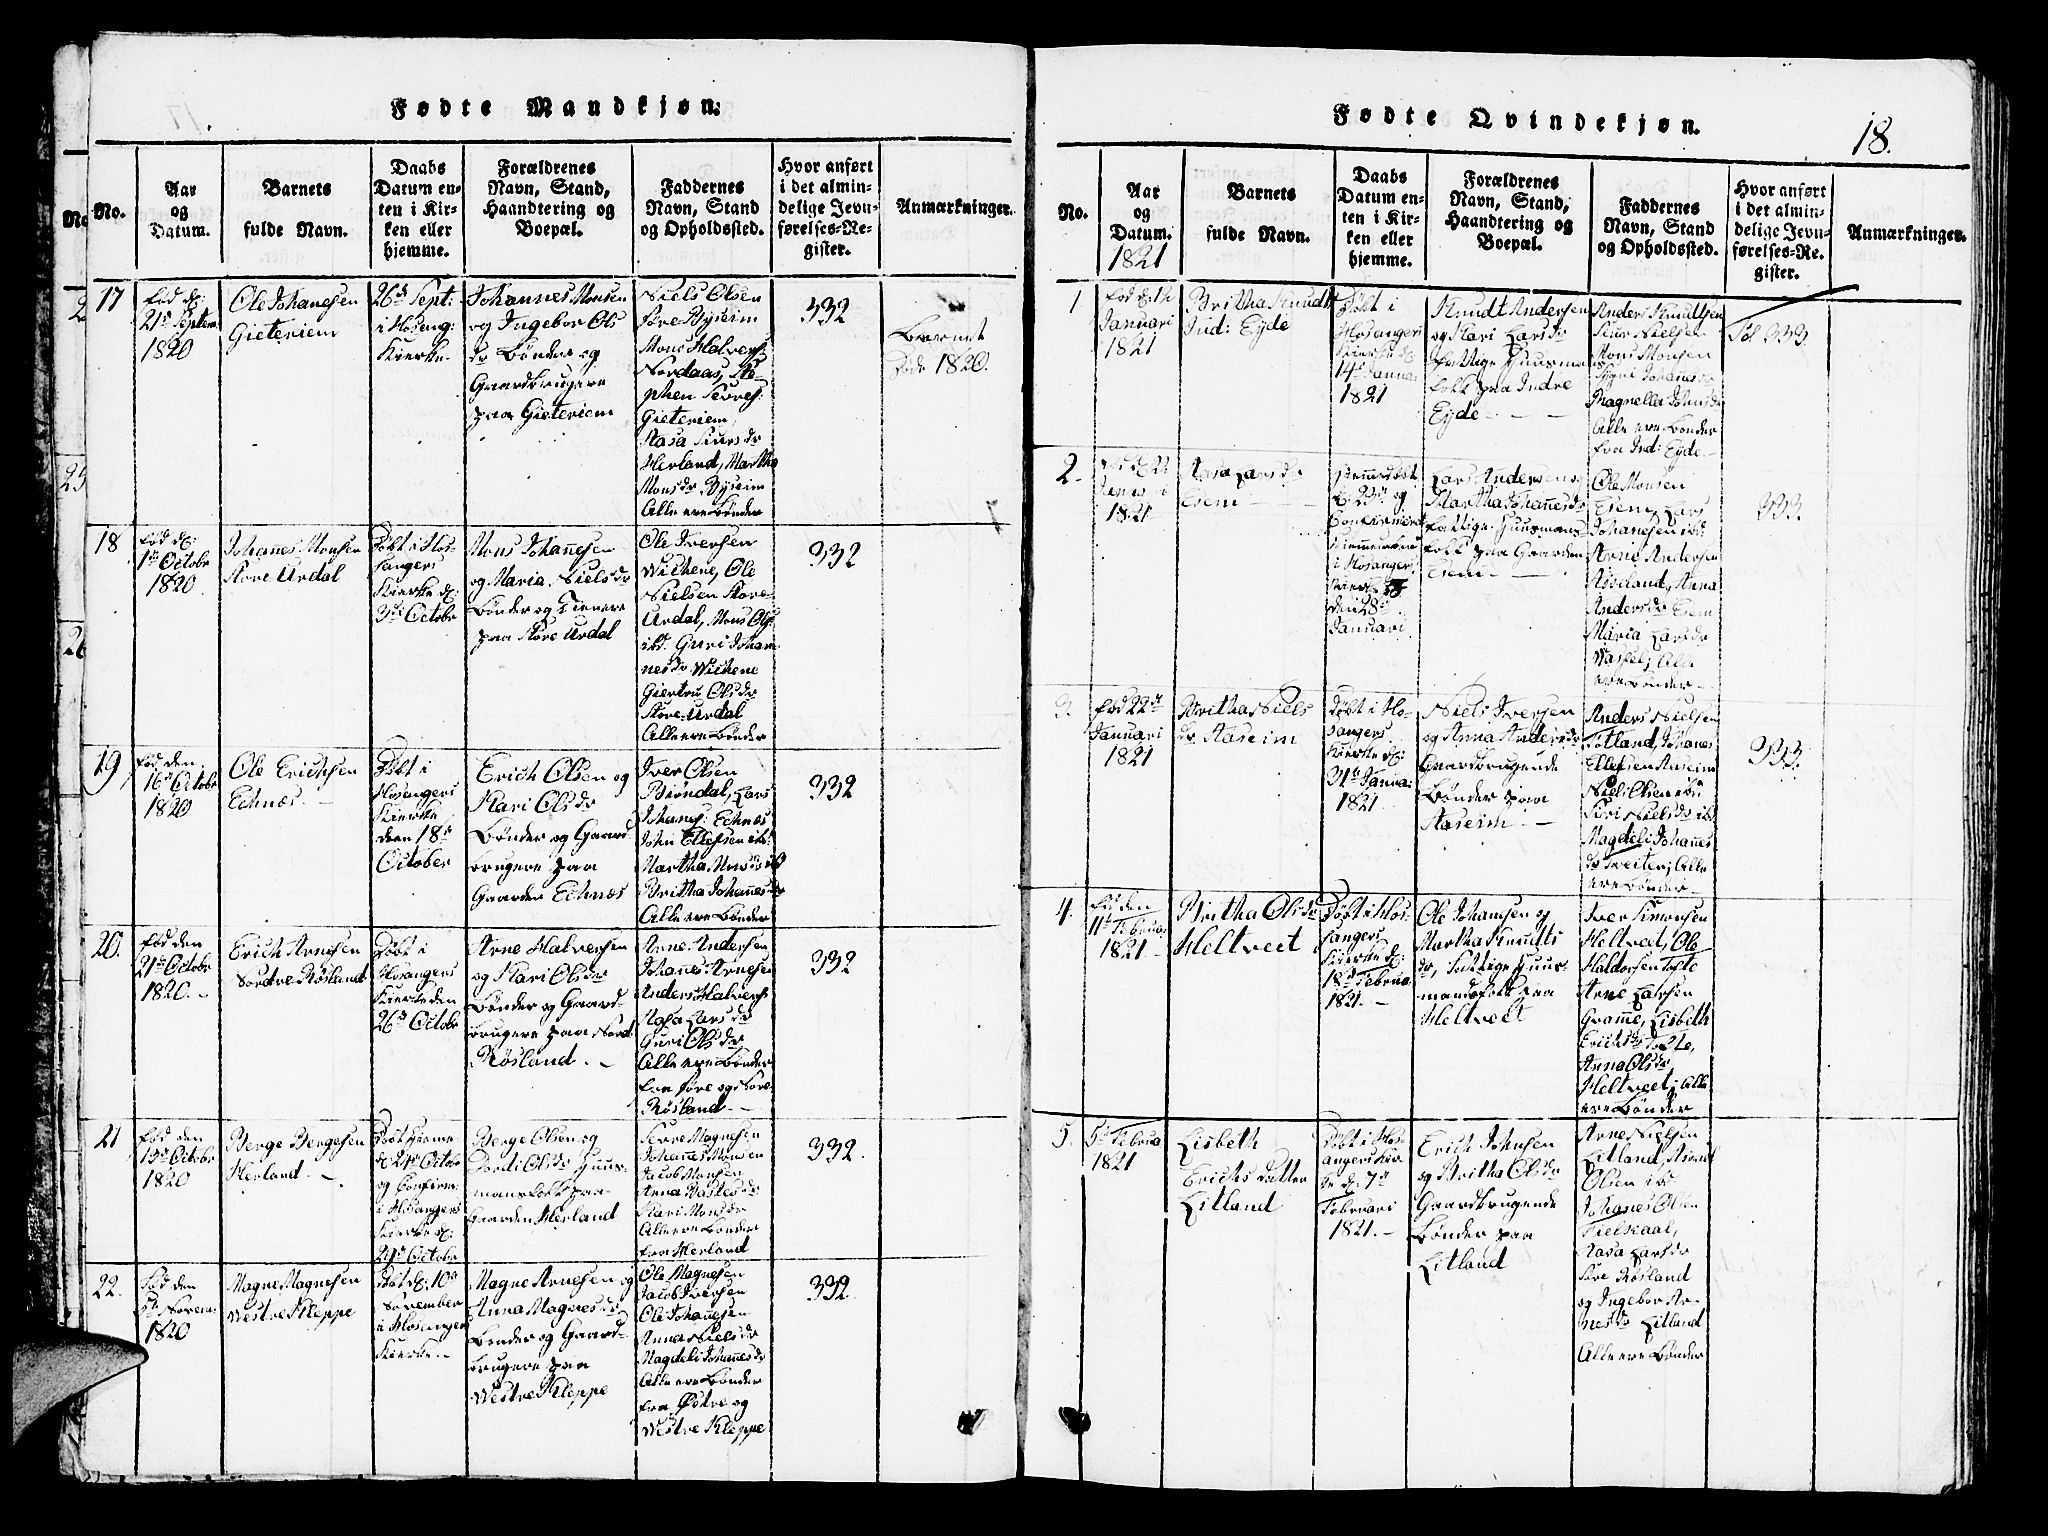 Fødte Mandkjøn:
No.
Aar
og
Datum.
Barnets
fulde Navn.
Daabs
Datum en-
ten i Kir-
ken eller
hjemme.
Forældrenes
Navn, Stand,
Haandtering og
Boepæl.
Faddernes
Navn, Stand
og Opholdssted.
Hvor anført
i det almin-
delige Jevn-
førelses-Re-
gister.
Anmærkninger.
17
Fød d:
21de Septem
1820
Ole Johanesen
Gieteriem
26de Sept:
i Hosang:
Kierke
Johannes Monsen
og Ingebor Ols
dr Bønder og
Gaardbrugere
paa Gieteriem
Niels Olsen
søre Byseim
Mons Halvers
Nordaas, Ste-
phen Siurs:
Gieteriem,
Aasa Siursdr
Herland, Martha
Monsdr. Byseim
Alle ere Bønder
332
Barnet
døde 1820.
18
Fød d:
1de Octobr
1820
Johanes Monsen
Store Urdal
Døbt i Ho-
sangers
Kierke d:
3de Octobr
Mons Johanesen
og Maria Nielsdr
Bønder og Tienere
paa Store Urdal
Ole Iversen
Wichene, Ole
Nielsen Store-
Urdal, Mons Ols:
ibd. Guri Johan-
nesdr Wichene
Giertru Olsdr
Store-Urdal
Alle ere Bønder
332
19
Fød den
16de Octobr
1820
Ole Erichsen
Echnæs
Døbt i
Hosangers
Kierke
den 18de
October
Erich Olsen og
Kari Olsdr
Bønder og Gaard-
brugere paa
Gaarden Echnæs
Iver Olsen
Birndal, Lars
Johans: Echnæs
John Ellefsen ibd:
Martha Monsdr ibd
Britha Johanesdr
Alle ere Bønder
332
20.
Fød den
21de Octobr
1820.
Erich Arnesen
Nordre Røsland
Døbt i
Hosangers
Kierke den
26de Octobr
Arne Halversen
og Kari Olsdr
Bønder og Gaard-
brugere paa Nord
Røsland.
Arne Andersen
Johanes Arnesen
Anders Halvers
Aasa Larsdr
Guri Olsdr
Alle ere Bønder
fra søre og Nore
Røsland
332
21
Fød den
19de Octobr
1820
Berge Bergesen
Herland
Døbt hieme
d: 24de Octobr
og Confirm:
i Hosangers
Kierke d:
29de Octobr
Berge Olsen og
Dordi Olsdr Huus-
mansfolk paa
Gaarden Herland
Siurs Magnesen
Johanes Monsen
Jacob Monsen
Anna Bastesdr
Kari Monsdr
Alle ere Bønder
fra Herland
332.
22.
Fød den
5te Novem:
1820
Magne Magnesen
Westre Kleppe
Døbt d: 10de
November
i Hosanger
Kierke
Magne Arnesen og
Anna Magnesdr
Bønder og Gaard-
brugere paa
Westre Kleppe
Ole Magnesen
Jacob Iversen
Ole Johanesen
Anna Nielsdr
Magdeli Johanesdr
Alle ere Bønder
fra Østre og
Westre Kleppe
332.
Fødte Qvindekjøn.
18.
No.
Aar
og
Datum.
1821
Barnets
fulde Navn.
Daabs
Datum en-
ten i Kir-
ken eller
hjemme.
Forældrenes
Navn, Stand,
Haandtering og
Boepæl.
Faddernes
Navn, Stand
og Opholdssted.
Hvor anført
i det almin-
delige Jevn-
førelses-Re-
gister.
Anmærkninger.
1
Januari
1821
Britha Knudtsdr
Ind: Eyde
Døbt i
Hosangers
Kierke d:
14de Janua:
1821
Knudt Andersen
og Kari Larsdr
fattige Huusmans
folk paa Indre
Eyde
Anders Knudtsen
Siur Nielsen
Mons Monsen
Sygni Johanesdr
Magnella Johnsdr
Alle ere Bønder
fra Ind: Eyde
Fol 333.
2.
1821
Aasa Larsdr
Esem
Hiemedøbt
d: 22de og
Confirmeret
i Hosanger
Kierke
den 28de
Januari
Lars Andersen og
Martha Johanesdr
fattige Huusmans
folk paa Gaarden
Esem
Ole Monsen
Esem, Lars
Johanesen ibd:
Arne Andersen
Asseland, Anna
Andersdr Esem
Maria Larsdr
Wassel; Alle
ere Bønder
333.
3.
Fød 22de
Januari
1821
Britha Niels
dr Aaseim
Døbt i Ho-
sangers
Kierke d:
31de Janua:
1821
Niels Iversen
og Anna Andersdr
Gaardbrugende
Bønder paa
Aaseim
Anders Nielsen
Totland, Johanes
Ellefsen Aaseim
Niels Olsen ibd
Siri Nielsdr ibd
Magdeli Johanes
dr Tveiter; Alle
ere Bønder
333.
4.
Fød den
11te Februar
1821
Britha Olsdr
Heltveet
Døbt i Ho-
sangers
Kierke d:
18de Februa
1821.
Ole Johansen og
Martha Knudts
dr, Fattige Huus-
mandsfolk paa
Heltveet
Iver Simonsen
Heltveet, Ole
Haldorsen Tofte
Arne Larsen
Grame, Lisbeth
Erichsdr Tofte,
Anna Olsdr
Heltveet; Alle
ere Bønder
5.
5te Februa
1821
Lisbeth
Erichs datter
Litland
Døbt i Hos-
angers Kir-
ke d: 7de
Februari
1821.
Erich Johnsen
og Britha Olsdr
Gaardbrugende
Bønder paa
Litland
Arne Nielsen
Litland, Asmd
Olsen ibd
Johanes Olsen
Fielskaal,
Aasa Larsdr
Søre Røsland
og Ingebor Ar-
nesdr Litland
Alle ere Bønder